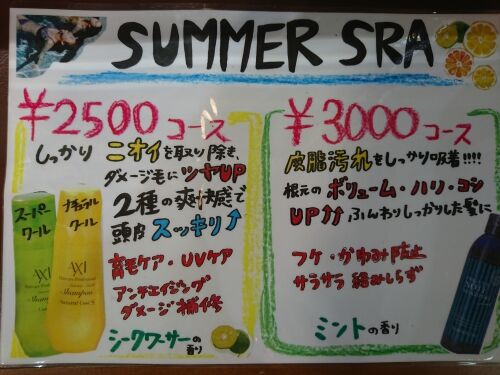 SUMMER SRA
¥2500 コース
しっかり ニオイを取り除き、
ダメージ毛に ツヤUP
2種の爽快感で
頭皮 スッキリ↑
育毛ケア・UVケア
アンチエイジング
ダメージ補修
シークワーサーの香り
スーパークール
ナチュラルクール
Shampoo
Shampoo
Natural Cool S
¥3000 コース
皮脂汚れをしっかり吸着!!!!
根元の ボリューム・ハリ・コシ
UP↑↑,ふんわりしっかりした髪に
フケ・かゆみ防止
サラサラ 絡みしらず
ミントの香り